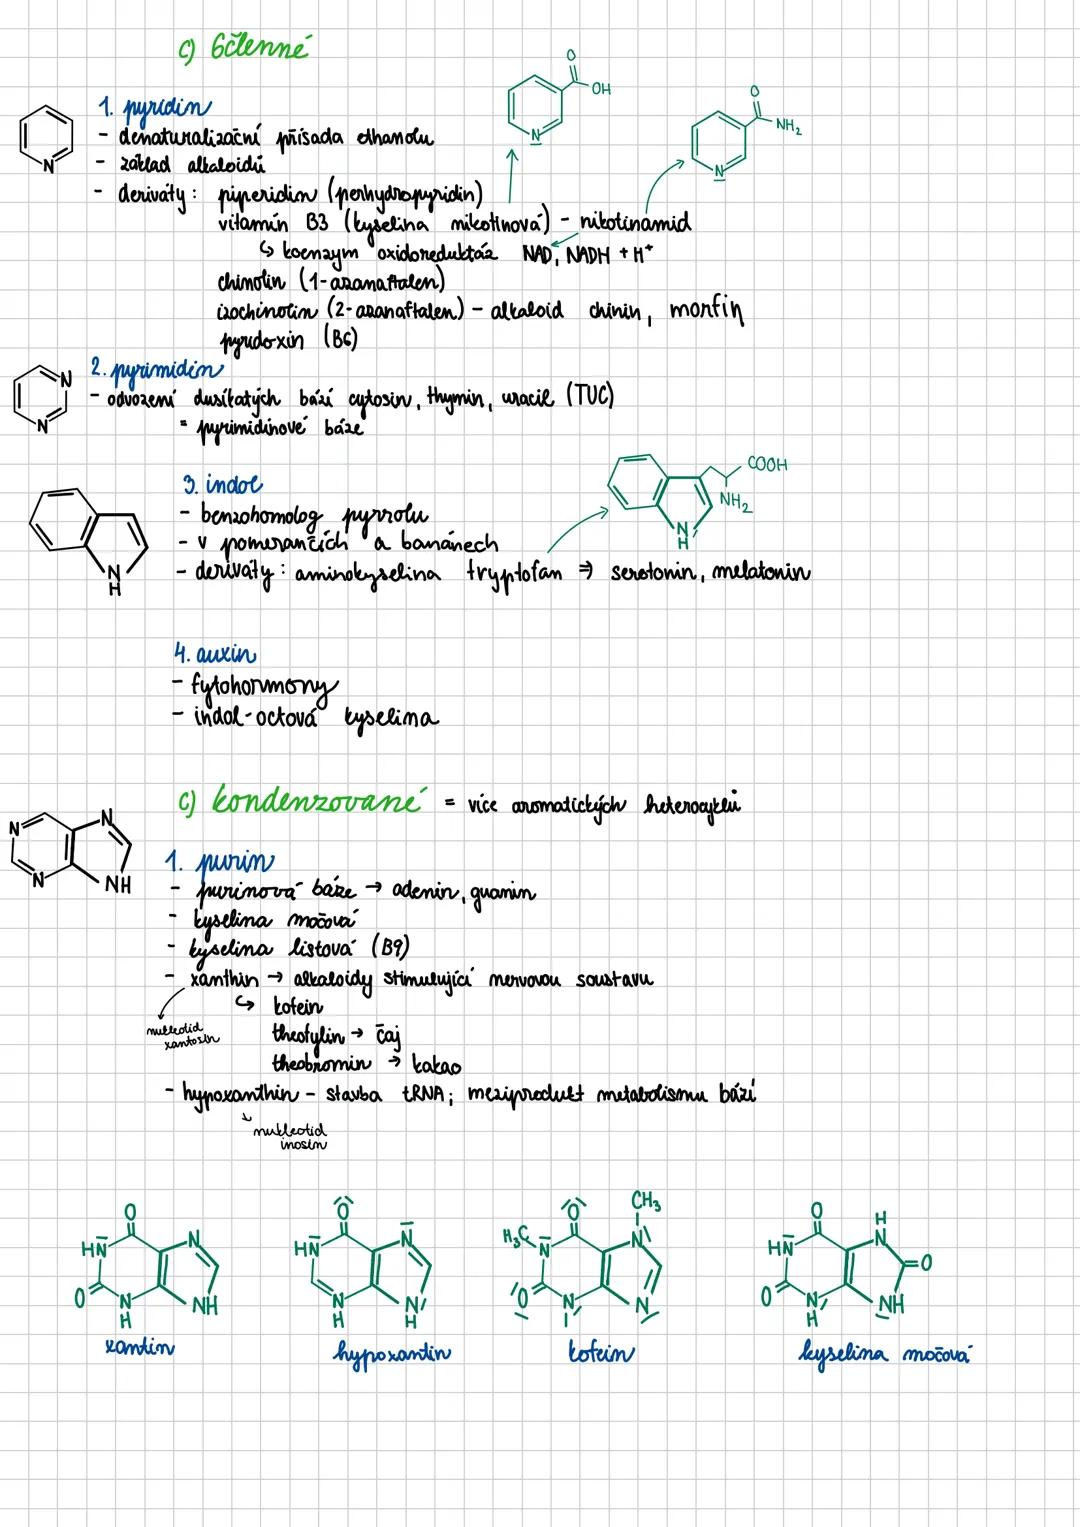 c) 6členné
1. pyridin
- denaturalizační přísada ethanolu
- základ alkaloidů
- deriváty: piperidin (perhydropyridin)
vitamín B3 (kyselina nikotinová) - nikotinamid
↳ koenzym oxidoreduktáz NAD, NADH + H⁺
chinolin (1-azanaftalen)
izochinolin (2-azanaftalen) - alkaloid chinin, morfin
pyridoxin (B6)
N
O
OH
N
O
NH₂
N
2. pyrimidin
- odvození dusíkatých bází cytosin, thymin, uracil (TUC)
= pyrimidinové báze
N
N
3. indol
- benzohomolog pyrrolu
- v pomerančích a banánech
- deriváty: aminokyselina tryptofan ⇒ serotonin, melatonin
N
H
COOH
NH₂
N
H
4. auxin
- fytohormony
- indol-octová kyselina
c) kondenzované = více aromatických heterocyklů
1. purin
- purinová báze → adenin, guanin
- kyselina močová
- kyselina listová (B9)
- xanthin → alkaloidy stimulující nervovou soustavu
↳ kofein
nukleotid
xantosin
theofylin → čaj
theobromin → kakao
- hypoxanthin - stavba tRNA; meziprodukt metabolismu bází
nukleotid
inosin
N
N
N
NH
O
HN
N
O
N
H
NH
xantin
O
HN
N
N
H
N
H
hypoxantin
O
CH₃
H₃C
N
N
O
N
N
kofein
O
H
HN
N
O
O
N
H
NH
kyselina močová